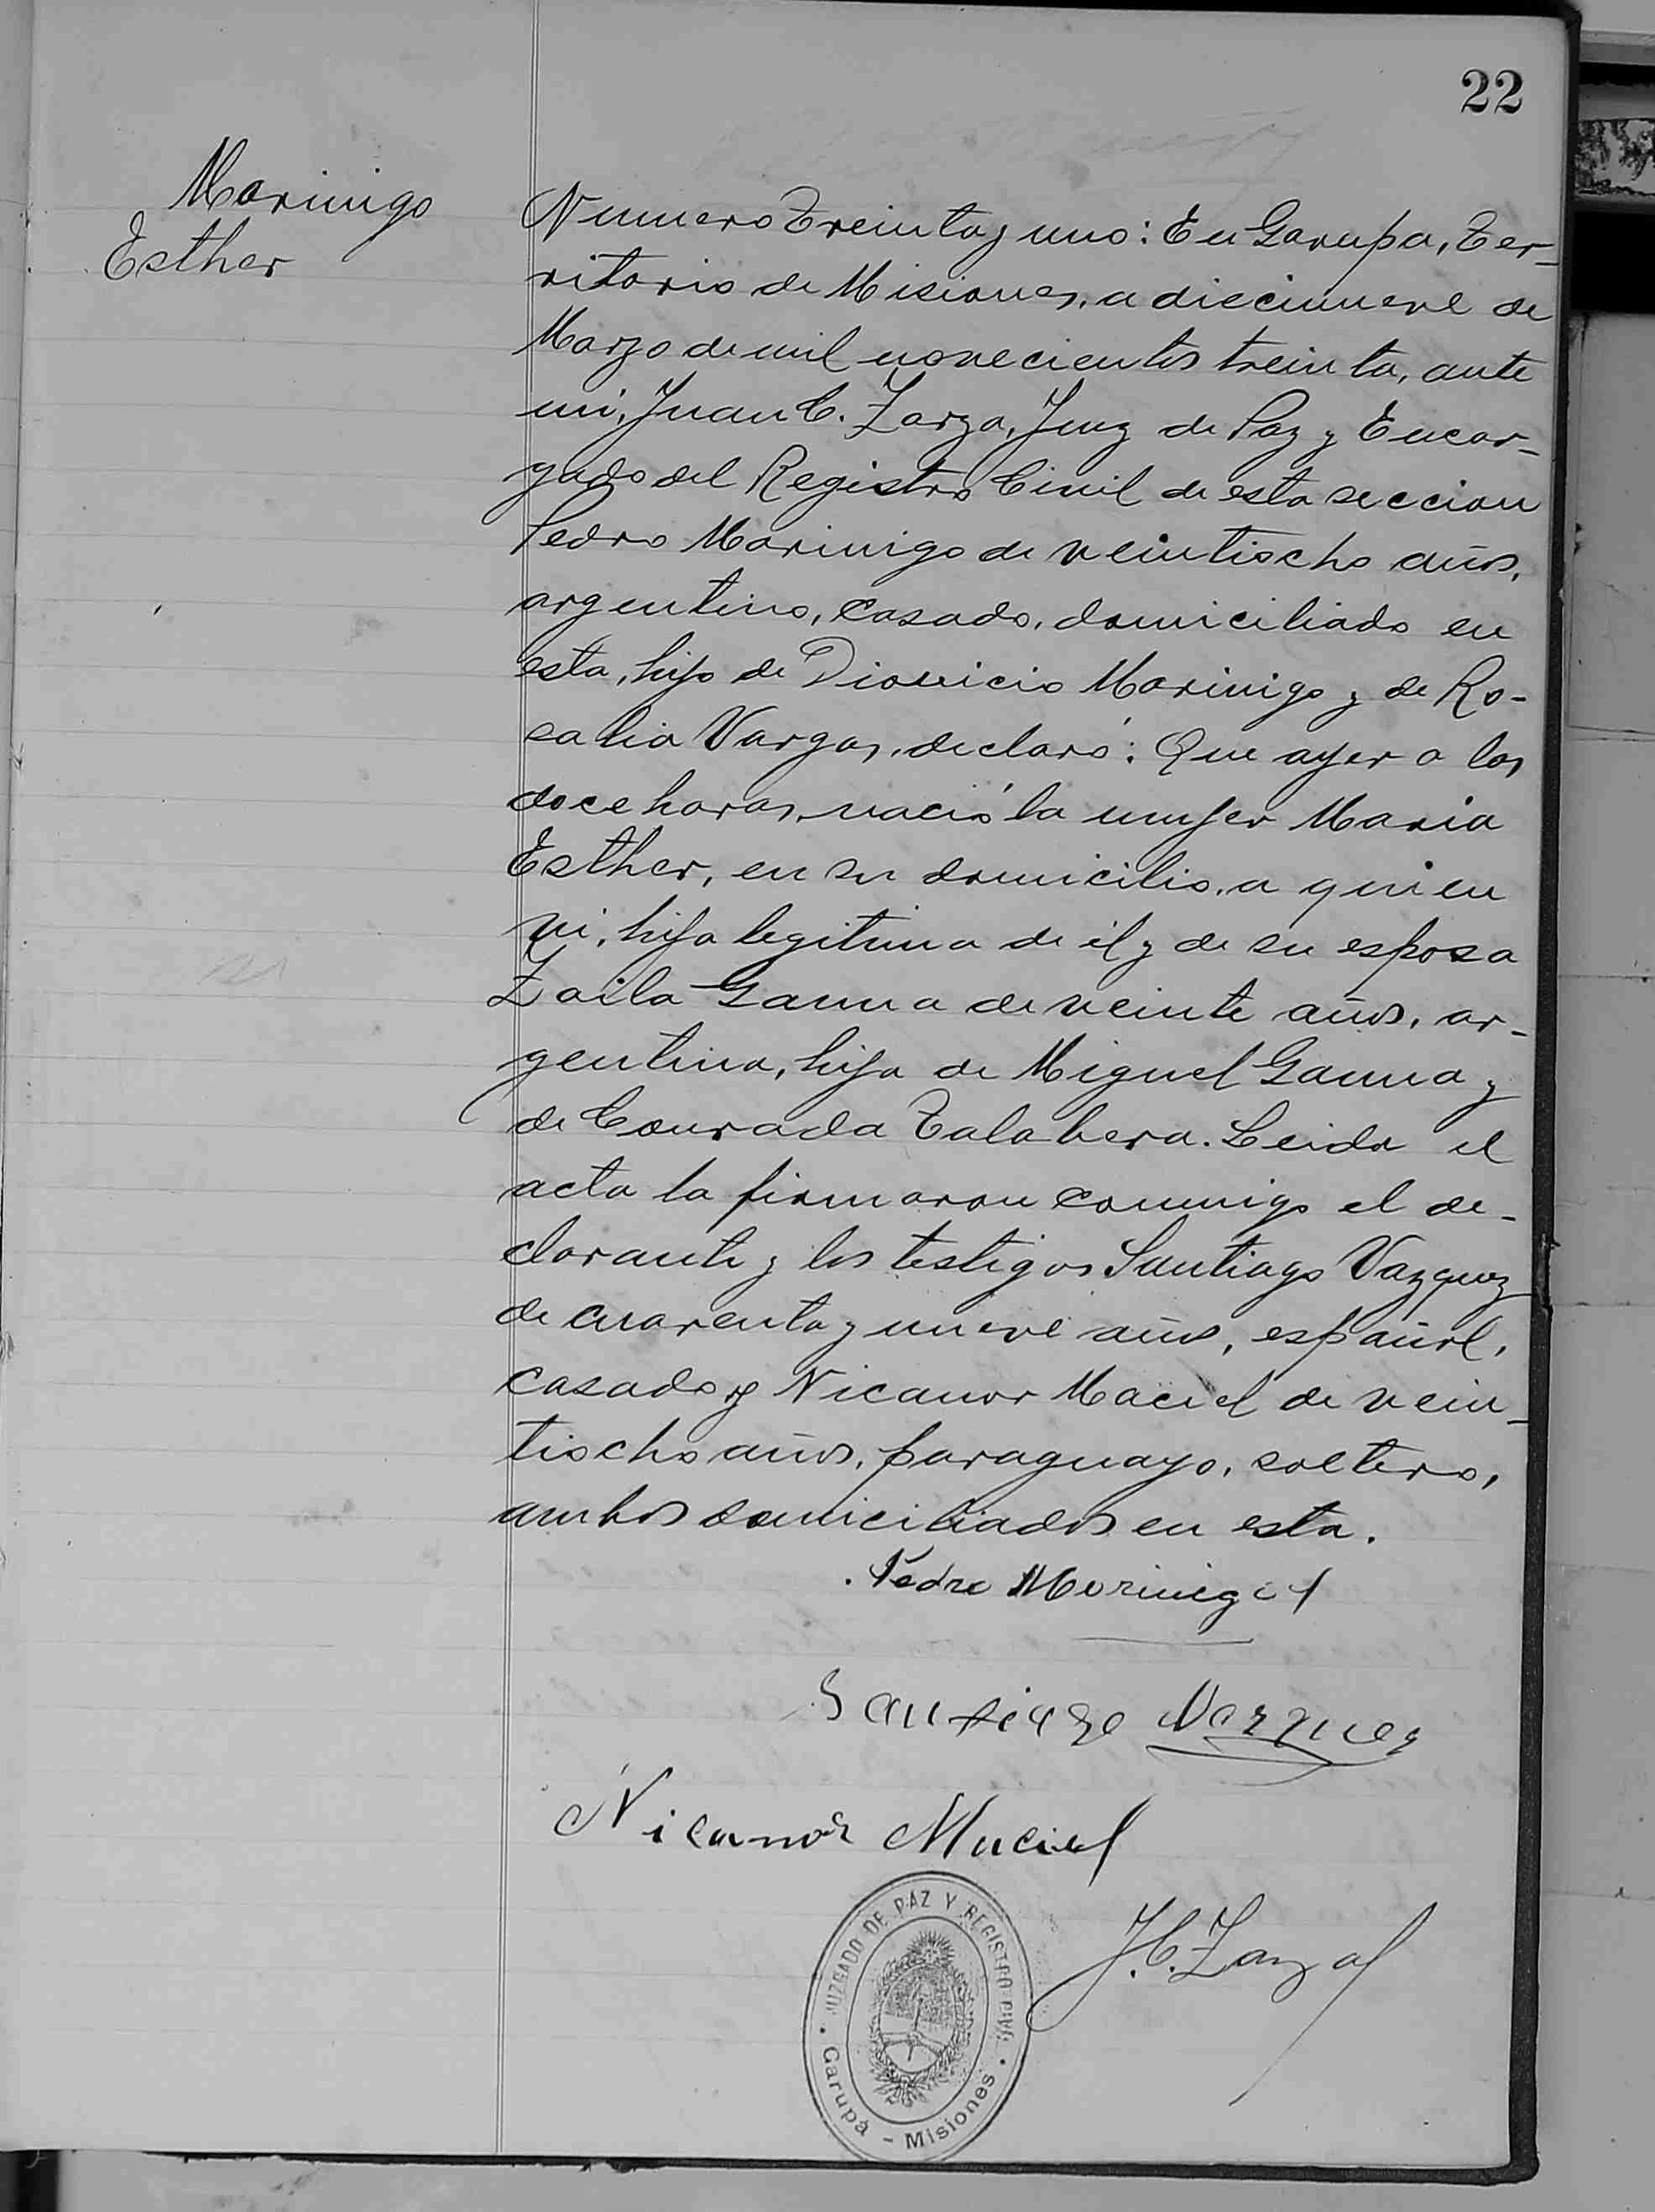 22
Morinigo
Esther
Numero Treinta y uno: En Garupa, Ter-
ritorio de Misiones, a diecinueve de
Marzo de mil novecientos treinta, ante
mi, Juan C. Zarza, Juez de Paz y Encar-
gado del Registro Civil de esta seccion
Pedro Morinigo de veintiocho años,
argentino, casado, domiciliado en
esta, hijo de Dionicio Morinigo y de Ro-
salia Vargas, declaró: Que ayer a las
doce horas, nació la mujer Maria
Esther, en su domicilio, a quien
vi, hija legitima de él y de su esposa
Zoila Gauna de veinte años, ar-
gentina, hija de Miguel Gauna y
de Conrada Talabera. Leida el
acta la firmaron conmigo el de-
clarante y los testigos Santiago Vazquez
de cuarenta y nueve años, español,
casado y Nicanor Maciel de vein-
tiocho años, paraguayo, soltero,
ambos domiciliados en esta.
Pedro Morinigo
Santiago Vazquez
Nicanor Maciel
J.C. Zarza
JUZGADO DE PAZ Y REGISTRO CIVIL
Garupá - Misiones